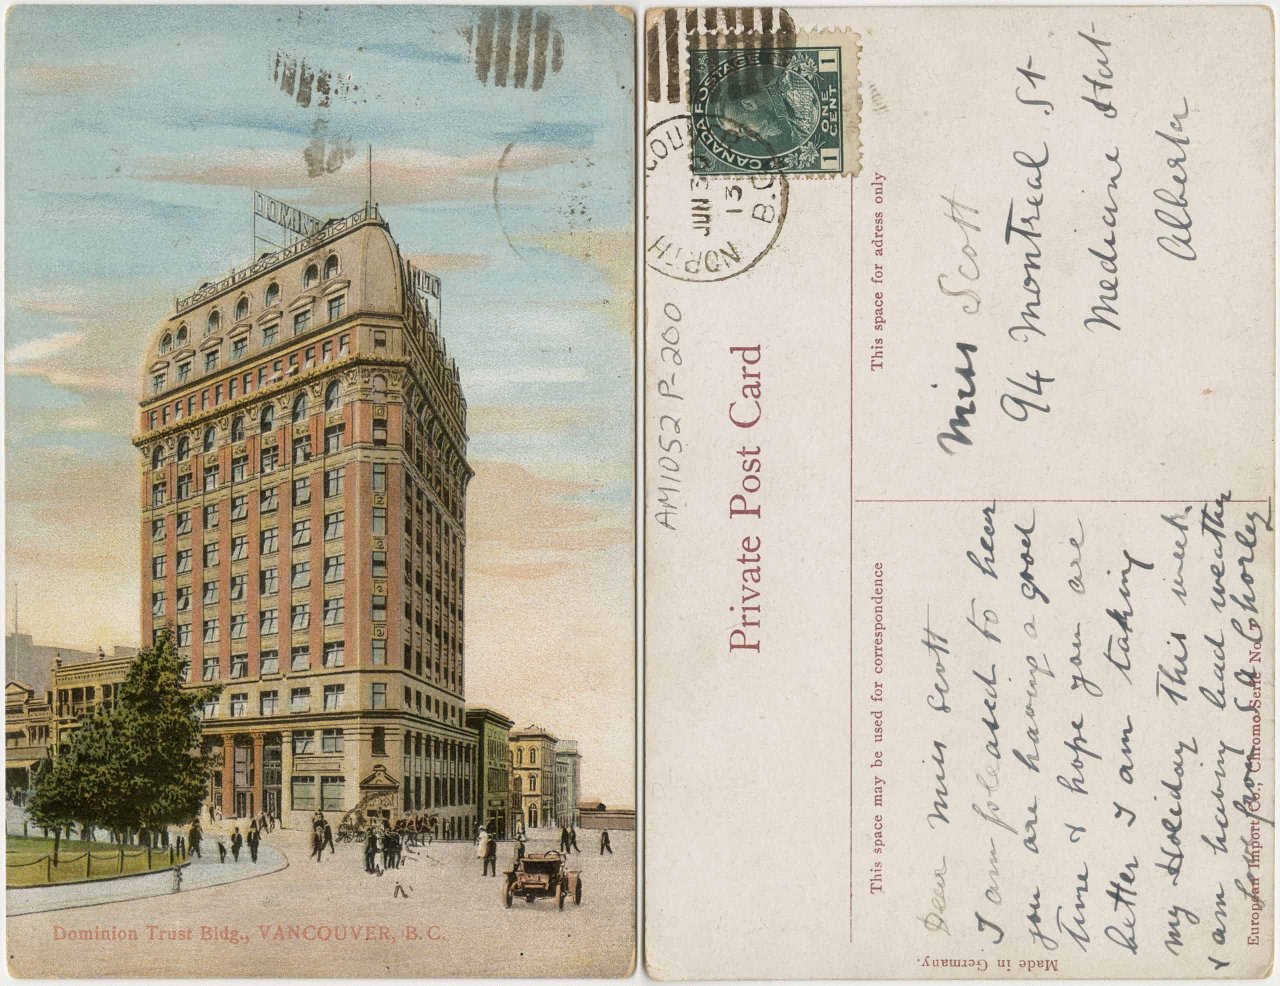 DOMINI
Dominion Trust Bldg., VANCOUVER, B. C.
CANADA POSTAGE
1 ONE CENT 1
NORTH VANCOUVER
JUN 3
13
B.C.
AM1052 P-200
Private Post Card
This space for adress only
Miss Scott
94 Montreal St
Medicine Hat
Alberta
This space may be used for correspondence
Dear Miss Scott
I am pleased to hear
you are having a good
time & hope you are
better I am taking
my Holiday this week
& am having bad weather
love from S A Chorley
European Import Co., Chromo-Serie No.
Made in Germany.